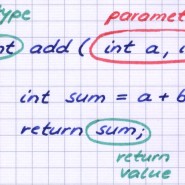 type paramet
nt add ( int a,
int sum = a + b
return sum;
return
value